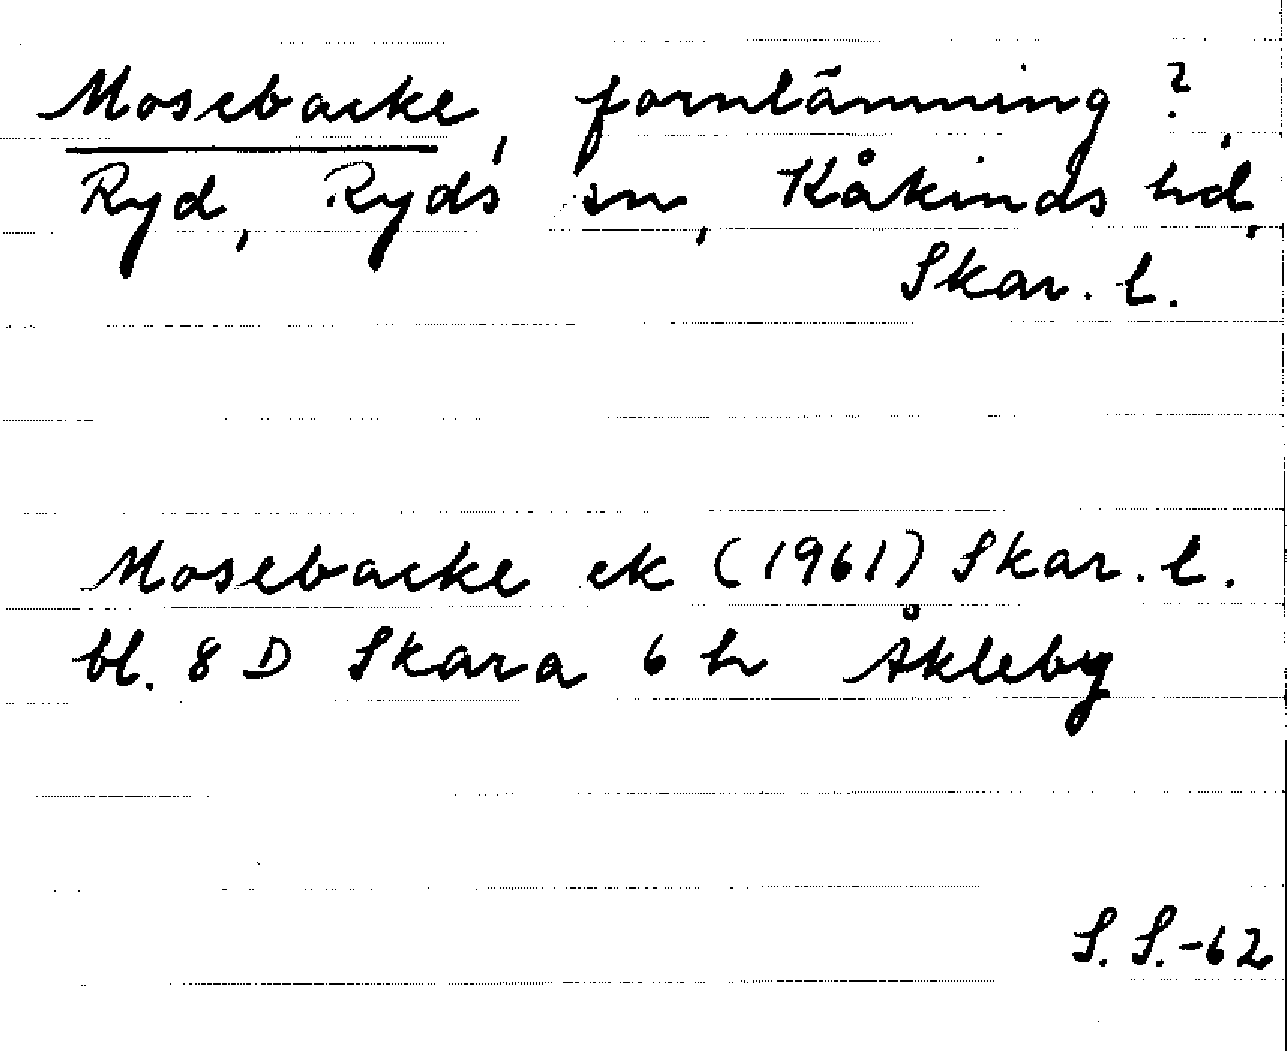 Mosebacke, fornlämning?,
Ryd, Ryds sn, Kåkinds hd,
Skar. l.
Mosebacke ek (1961) Skar. l.
bl. 8 D Skara 6 h Åkleby
S. S.-62